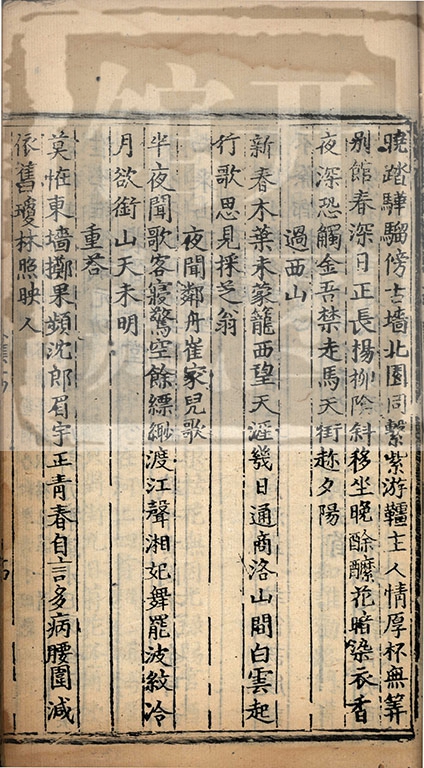 曉踏驊騮傍古墙北園同繫紫游韁主人情厚杯無筭
別館春深日正長揚柳陰斜移坐晚酴醿花暗染衣香
夜深恐觸金吾禁走馬天街趂夕陽
過西山
新春木葉未蒙籠西望天涯幾日通商洛山間白雲起
行歌思見採芝翁
夜聞鄰舟崔家兒歌
半夜聞歌客寢驚空餘縹緲渡江聲湘妃舞罷波紋冷
月欲銜山天未明
重荅
莫恠東墻擲果頻沈郎眉宇正青春自言多病腰圍減
依舊瓊林照映人